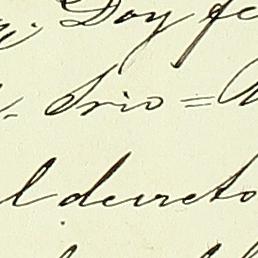 Doy fe
Srio =
l decreto